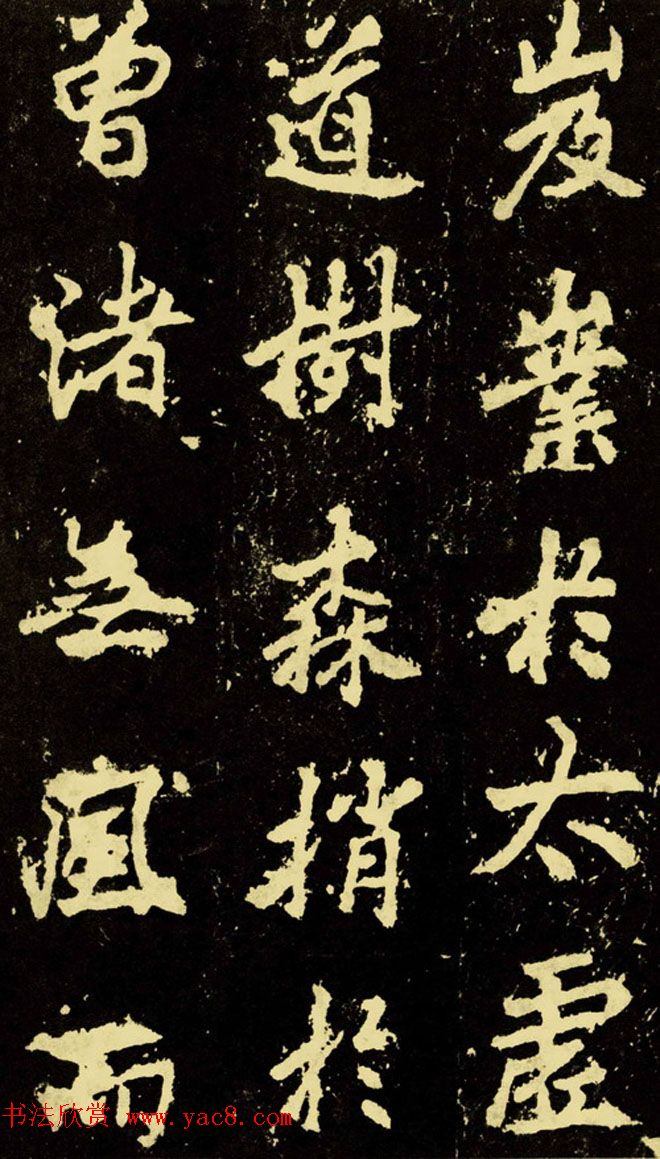 岌嶪於太虛
道樹森捎於
曾渚無風而
书法欣赏 www.yac8.com